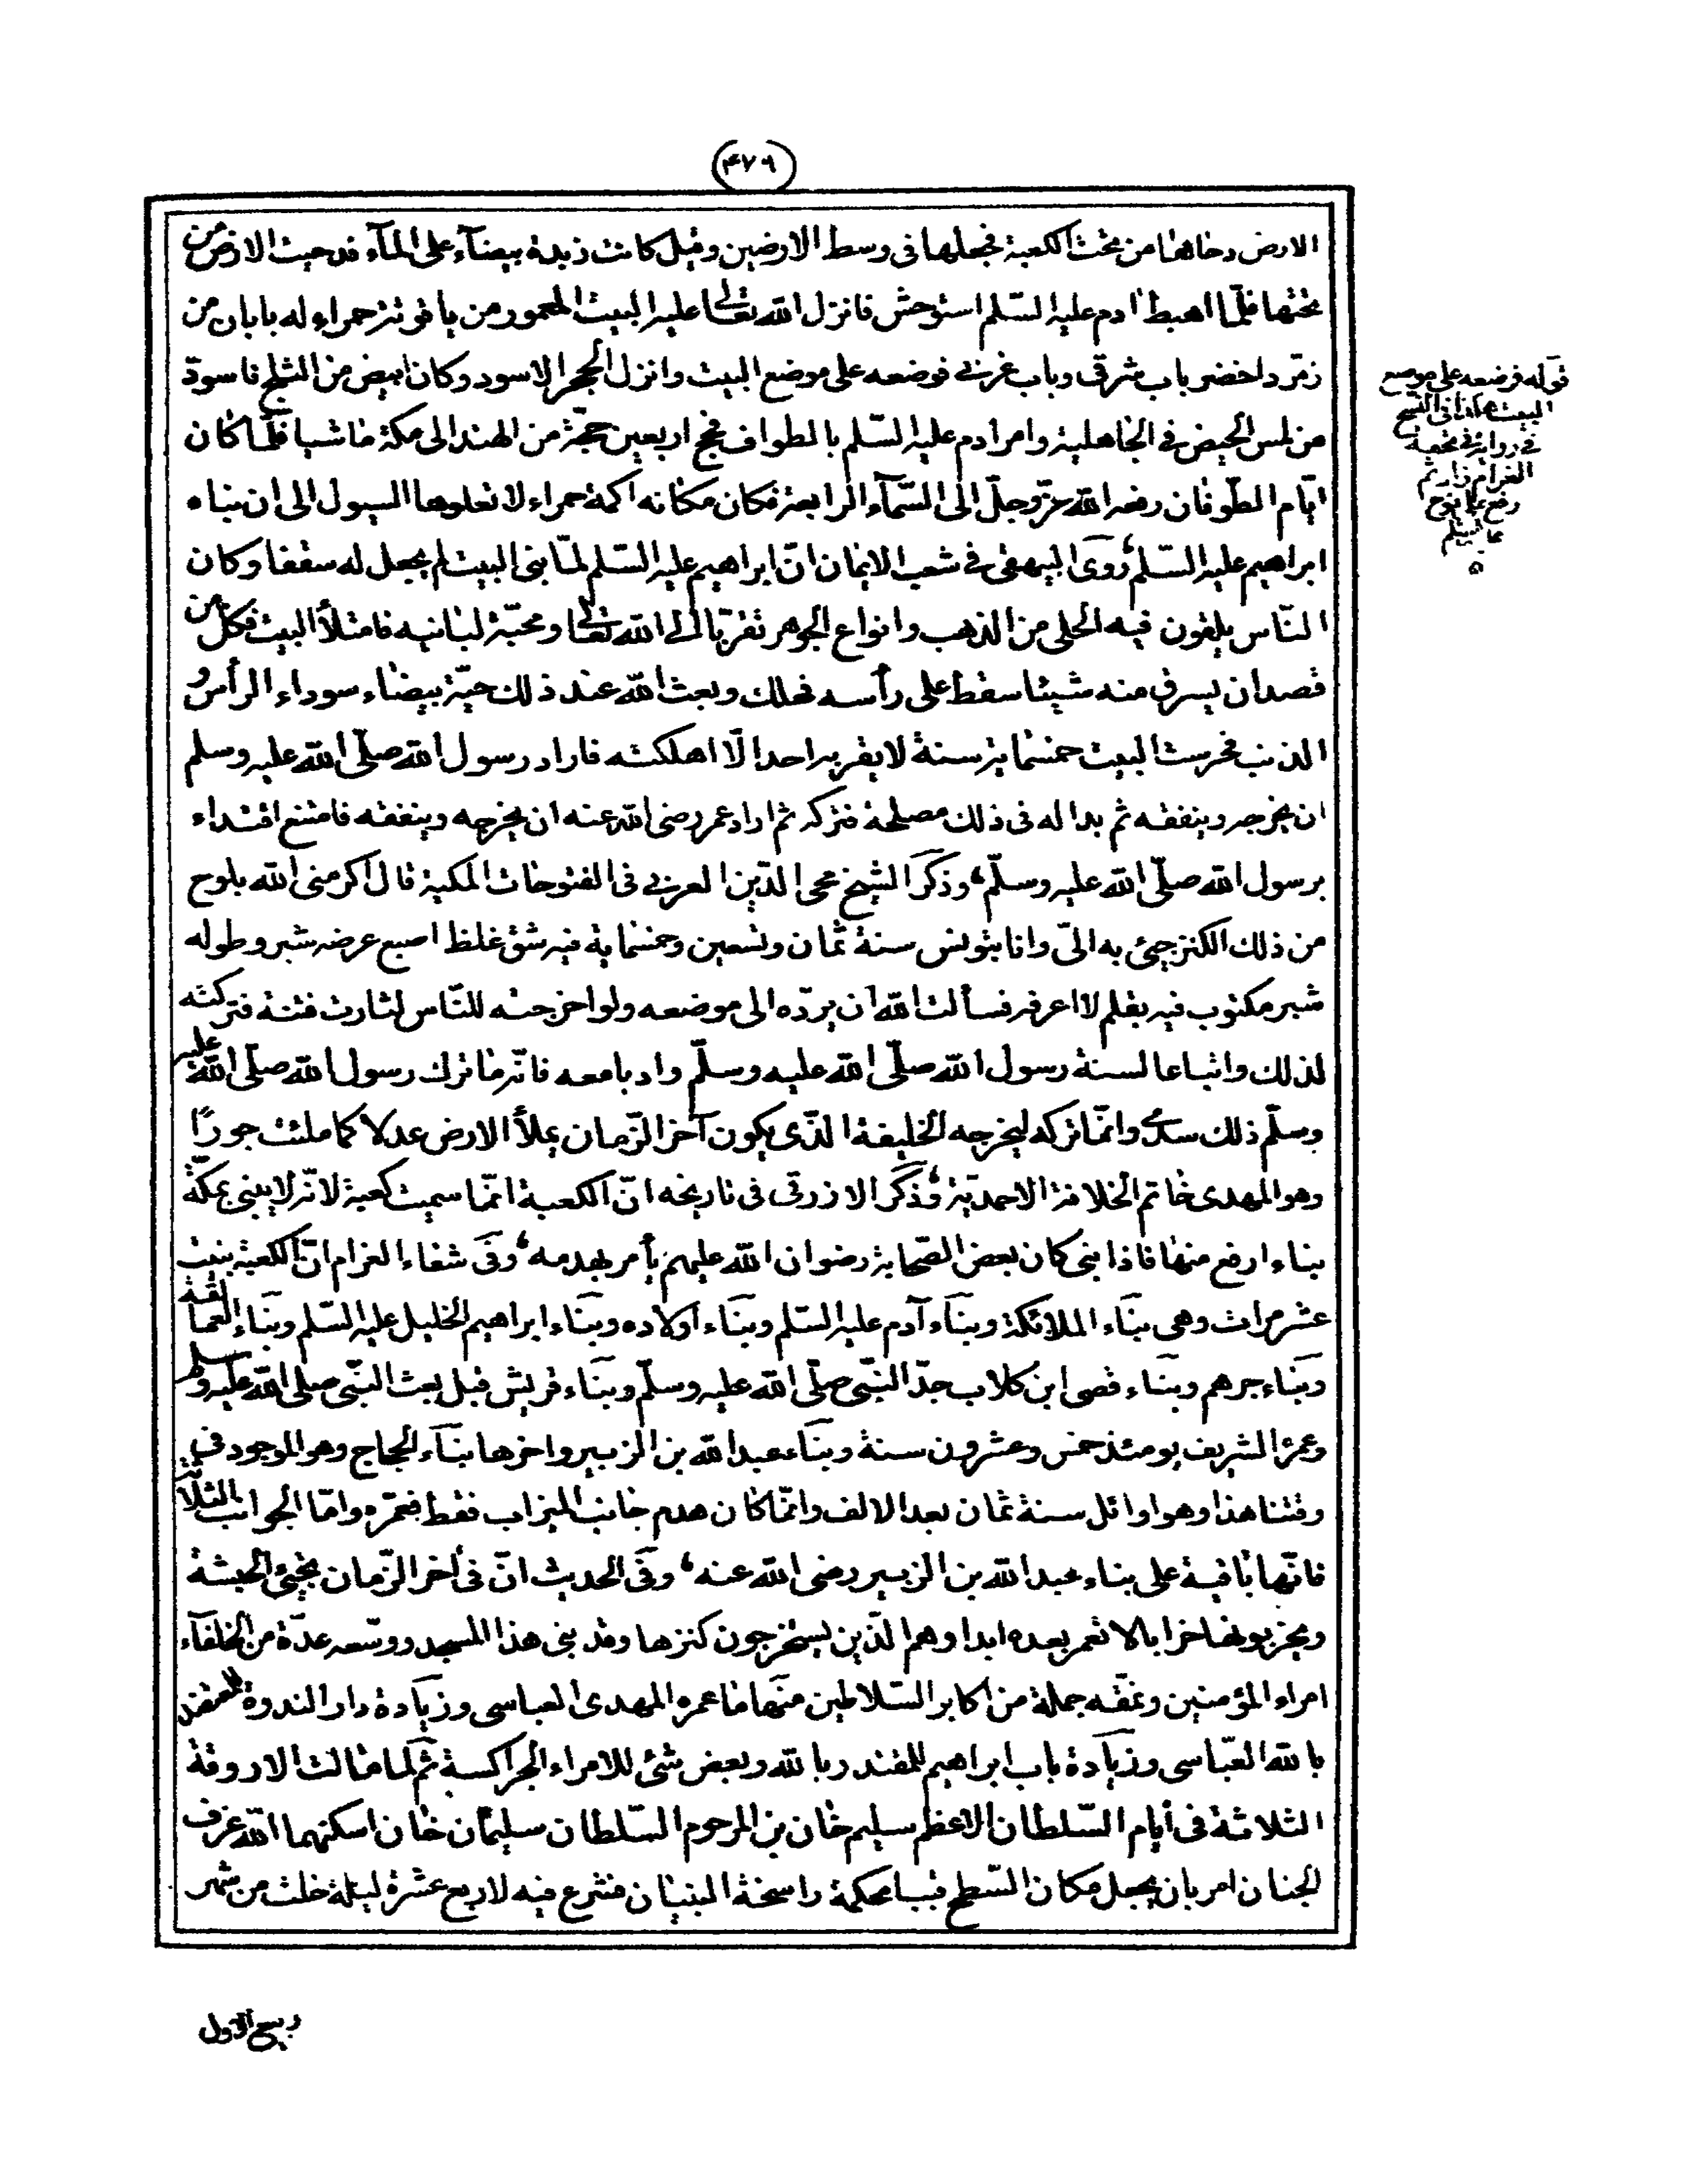 (۴۷۶)
الارض دحاها من تحت الكعبة فجعلها فى وسط الارضين وقيل كانت زبدة بيضآء على المآء فدحيت الارض من
تحتها فلمّا اهبط ادم عليه السّلم استوحش فانزل الله تعالى عليه البيت المعمور من ياقوتة حمراء له بابان من
زمرد اخضر باب شرقى وباب غربى فوضعه على موضع البيت وانزل الحجر الاسود وكان ابيض من الثلج فاسودّ
من لمس الحيض فى الجاهلية وامر ادم عليه السّلم بالطواف فحج اربعين حجّة من الهند الى مكة ماشيا فلمّا كان
ايّام الطّوفان رفعه الله عزّ وجلّ الى السّمآء الرابعة فكان مكانه اكمة حمراء لا تعلوها السيول الى ان بناه
ابراهيم عليه السّلم، روى البيهقى فى شعب الايمان انّ ابراهيم عليه السّلم لمّا بنى البيت لم يجعل له سقفا وكان
النّاس يلقون فيه الحلى من الذهب وانواع الجوهر تقرّبا الى الله تعالى ومحبّة لبانيه فامتلأ البيت فكل من
قصد ان يسرق منه شيئا سقط على رأسه فهلك وبعث الله عند ذلك حيّة بيضاء سوداء الرأس و
الذنب فحرست البيت خمسماية سنة لا يقربه احد الّا اهلكته فاراد رسول الله صلّى الله عليه وسلم
ان يخرجه وينفقه ثم بدا له فى ذلك مصلحة فتركه ثم اراد عمر رضى الله عنه ان يخرجه وينفقه فامتنع اقتداء
برسول الله صلّى الله عليه وسلّم، وذكر الشيخ محى الدّين العربى فى الفتوحات المكية قال اكرمنى الله بلوح
من ذلك الكنز جيئ به الىّ وانا بتونس سنة ثمان وتسعين وخمسماية فيه شق غلظ اصبع عرضه شبر وطوله
شبر مكتوب فيه بقلم لا اعرفه فسألت الله ان يردّه الى موضعه ولو اخرجته للنّاس لثارت فتنة فتركته
لذلك واتباعا لسنة رسول الله صلّى الله عليه وسلّم وادبا معه فانّه ما ترك رسول الله صلّى الله عليه
وسلّم ذلك سدى وانّما تركه ليخرجه الخليفة الذّى يكون آخر الزّمان يملأ الارض عدلا كما ملئت جورًا
وهو المهدى خاتم الخلافة الاحمديّة، وذكر الازرقى فى تاريخه انّ الكعبة انّما سميت كعبة لانّه لا يبنى بمكّة
بناء ارفع منها فاذا بنى كان بعض الصّحابة رضوان الله عليهم يأمر بهدمه، وفى شفاء الغرام انّ الكعبة بنيت
عشر مرات وهى بناء الملائكة وبناء آدم عليه السّلم وبناء اولاده وبناء ابراهيم الخليل عليه السّلم وبناء العمالقة
وبناء جرهم وبناء قصى ابن كلاب جدّ النّبى صلّى الله عليه وسلّم وبناء قريش قبل بعث النّبى صلى الله عليه وسلم
وعمره الشريف يومئذ خمس وعشرون سنة وبناء عبد الله بن الزبير واخرها بنآء الحجاج وهو الموجود فى
وقتنا هذا وهو اوائل سنة ثمان بعد الالف وانّما كان هدم جانب الميزاب فقط فعمّره وامّا الجوانب الثلاثة
فانّها باقية على بناء عبد الله بن الزبير رضى الله عنه، وفى الحديث انّ فى أخر الزّمان يجيئ الحبشة
ويخربونها خرابا لا تعمر بعده ابدا وهم الذّين يستخرجون كنزها وقد بنى هذا المسجد ووسّعه عدّة من الخلفآء
امراء المؤمنين ونمقه جملة من اكابر السّلاطين منها ما عمره المهدى العباسى وزيادة دار الندوة للمعتضد
بالله العبّاسى وزيادة باب ابراهيم للمقتدر بالله وبعض شئ للامراء الجراكسة ثم لما مالت الاروقة
الثلاثة فى أيام السّلطان الاعظم سليم خان بن المرحوم السّلطان سليمان خان اسكنهما الله غرف
الجنان امر بان يجعل مكان السّطح قببا محكمة راسخة البنيان فشرع فيه لاربع عشرة ليلة خلت من شهر
ربيع الاول
قوله فوضعه على موضع
البيت هكذا فى النسخ
فى رواية
الغرام زار ثم
رفع على نوح
عليه السلم